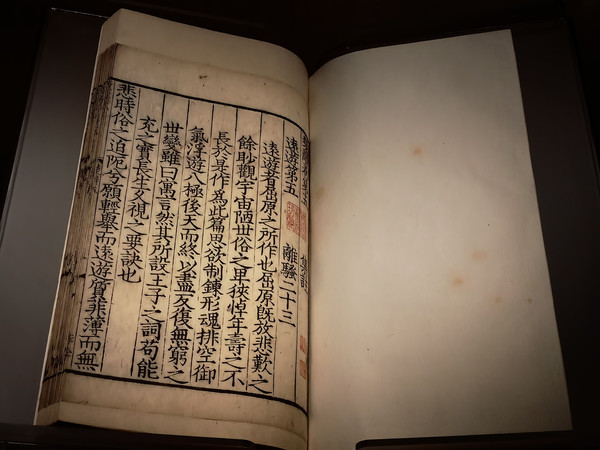 遠遊第五 離騷二十三
遠遊者屈原之所作也屈原旣放悲歎之
餘眇觀宇宙陋世俗之卑狹悼年壽之不
長於是作爲此篇思欲制鍊形魂排空御
氣浮遊八極後天而終以盡反復無窮之
世變雖曰寓言然其所設王子之詞苟能
充之實長生久視之要訣也
悲時俗之迫阨兮願輕舉而遠遊質菲薄而無